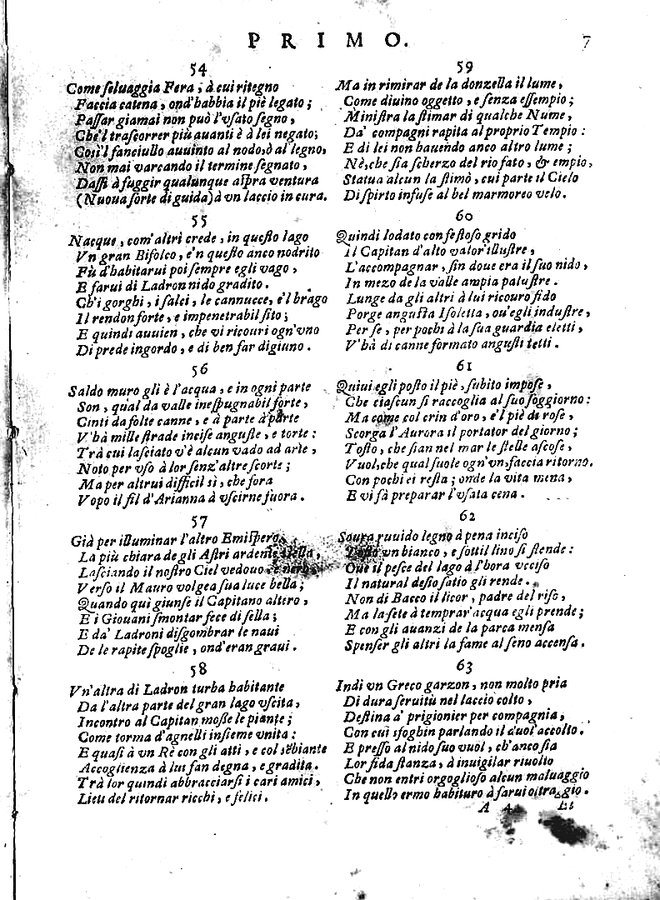 PRIMO. 7
54
Come seluaggia Fera, à cui ritegno
Faccia catena, ond'habbia il piè legato;
Passar giamai non può l'vsato segno,
Che'l trascorrer più auanti è à lei negato;
Così'l fanciullo auuinto al nodo, ò al legno,
Non mai varcando il termine segnato,
Dassi à fuggir qualunque aspra ventura
(Nuoua sorte di guida) à vn laccio in cura.
55
Nacque, com'altri crede, in questo lago
Vn gran Bifolco, e'n questo anco nodrito
Fù d'habitarui poi sempre egli vago,
E farui di Ladron nido gradito.
Ch'i gorghi, i salci, le cannucce, e'l brago
Il rendon forte, e impenetrabil sito;
E quindi auuien, che vi ricouri ogn'vno
Di prede ingordo, e di ben far digiuno.
56
Saldo muro gli è l'acqua, e in ogni parte
Son, qual da valle inespugnabil forte,
Cinti da folte canne, e à parte à parte
V'hà mille strade incise anguste, e torte:
Trà cui lasciato v'è alcun vado ad arte,
Noto per vso à lor senz'altre scorte;
Ma per altrui difficil sì, che fora
Vopo il fil d'Arianna à vscirne fuora.
57
Già per illuminar l'altro Emispero,
La più chiara de gli Astri ardente stella,
Lasciando il nostro Ciel vedouo e nero,
Verso il Mauro volgea sua luce bella;
Quando quì giunse il Capitano altero,
E i Giouani smontar fece di sella;
E da' Ladroni disgombrar le naui
De le rapite spoglie, ond'eran graui.
58
Vn'altra di Ladron turba habitante
Da l'altra parte del gran lago vscita,
Incontro al Capitan mosse le piante;
Come torma d'agnelli insieme vnita:
E quasi à vn Rè con gli atti, e col sembiante
Accoglienza à lui fan degna, e gradita.
Trà lor quindi abbracciarsi i cari amici,
Lieti del ritornar ricchi, e felici.
59
Ma in rimirar de la donzella il lume,
Come diuino oggetto, e senza essempio;
Ministra la stimar di qualche Nume,
Da' compagni rapita al proprio Tempio:
E di lei non hauendo anco altro lume;
Nè, che sia scherzo del rio fato, & empio,
Statua alcun la stimò, cui parte il Cielo
Di spirto infuse al bel marmoreo velo.
60
Quindi lodato con festoso grido
Il Capitan d'alto valor'illustre,
L'accompagnar, sin doue era il suo nido,
In mezo de la valle ampia palustre.
Lunge da gli altri à lui ricouro fido
Porge angusta Isoletta, ou'egli industre,
Per se, per pochi à la sua guardia eletti,
V'hà di canne formato angusti tetti.
61
Quiui egli posto il piè, subito impose,
Che ciascun si raccoglia al suo soggiorno:
Ma come col crin d'oro, e'l piè di rose,
Scorga l'Aurora il portator del giorno;
Tosto, che sian nel mar le stelle ascose,
Vuol, che qual suole ogn'vn, faccia ritorno.
Con pochi ei resta; onde la vita mena,
E vi fà preparar l'vsata cena.
62
Soura ruuido legno à pena inciso
Tosto vn bianco, e sottil lino si stende:
Oue il pesce del lago à l'hora vcciso
Il natural desio satio gli rende.
Non di Bacco il licor, padre del riso,
Ma la sete à temprar'acqua egli prende;
E con gli auanzi de la parca mensa
Spenser gli altri la fame al seno accensa.
63
Indi vn Greco garzon, non molto pria
Di dura seruitù nel laccio colto,
Destina a' prigionier per compagnia,
Con cui sfoghin parlando il duol'accolto.
E presso al nido suo vuol, ch'anco sia
Lor fida stanza, à inuigilar riuolto
Che non entri orgoglioso alcun maluaggio
In quello ermo habituro à farui oltraggio.
A 4